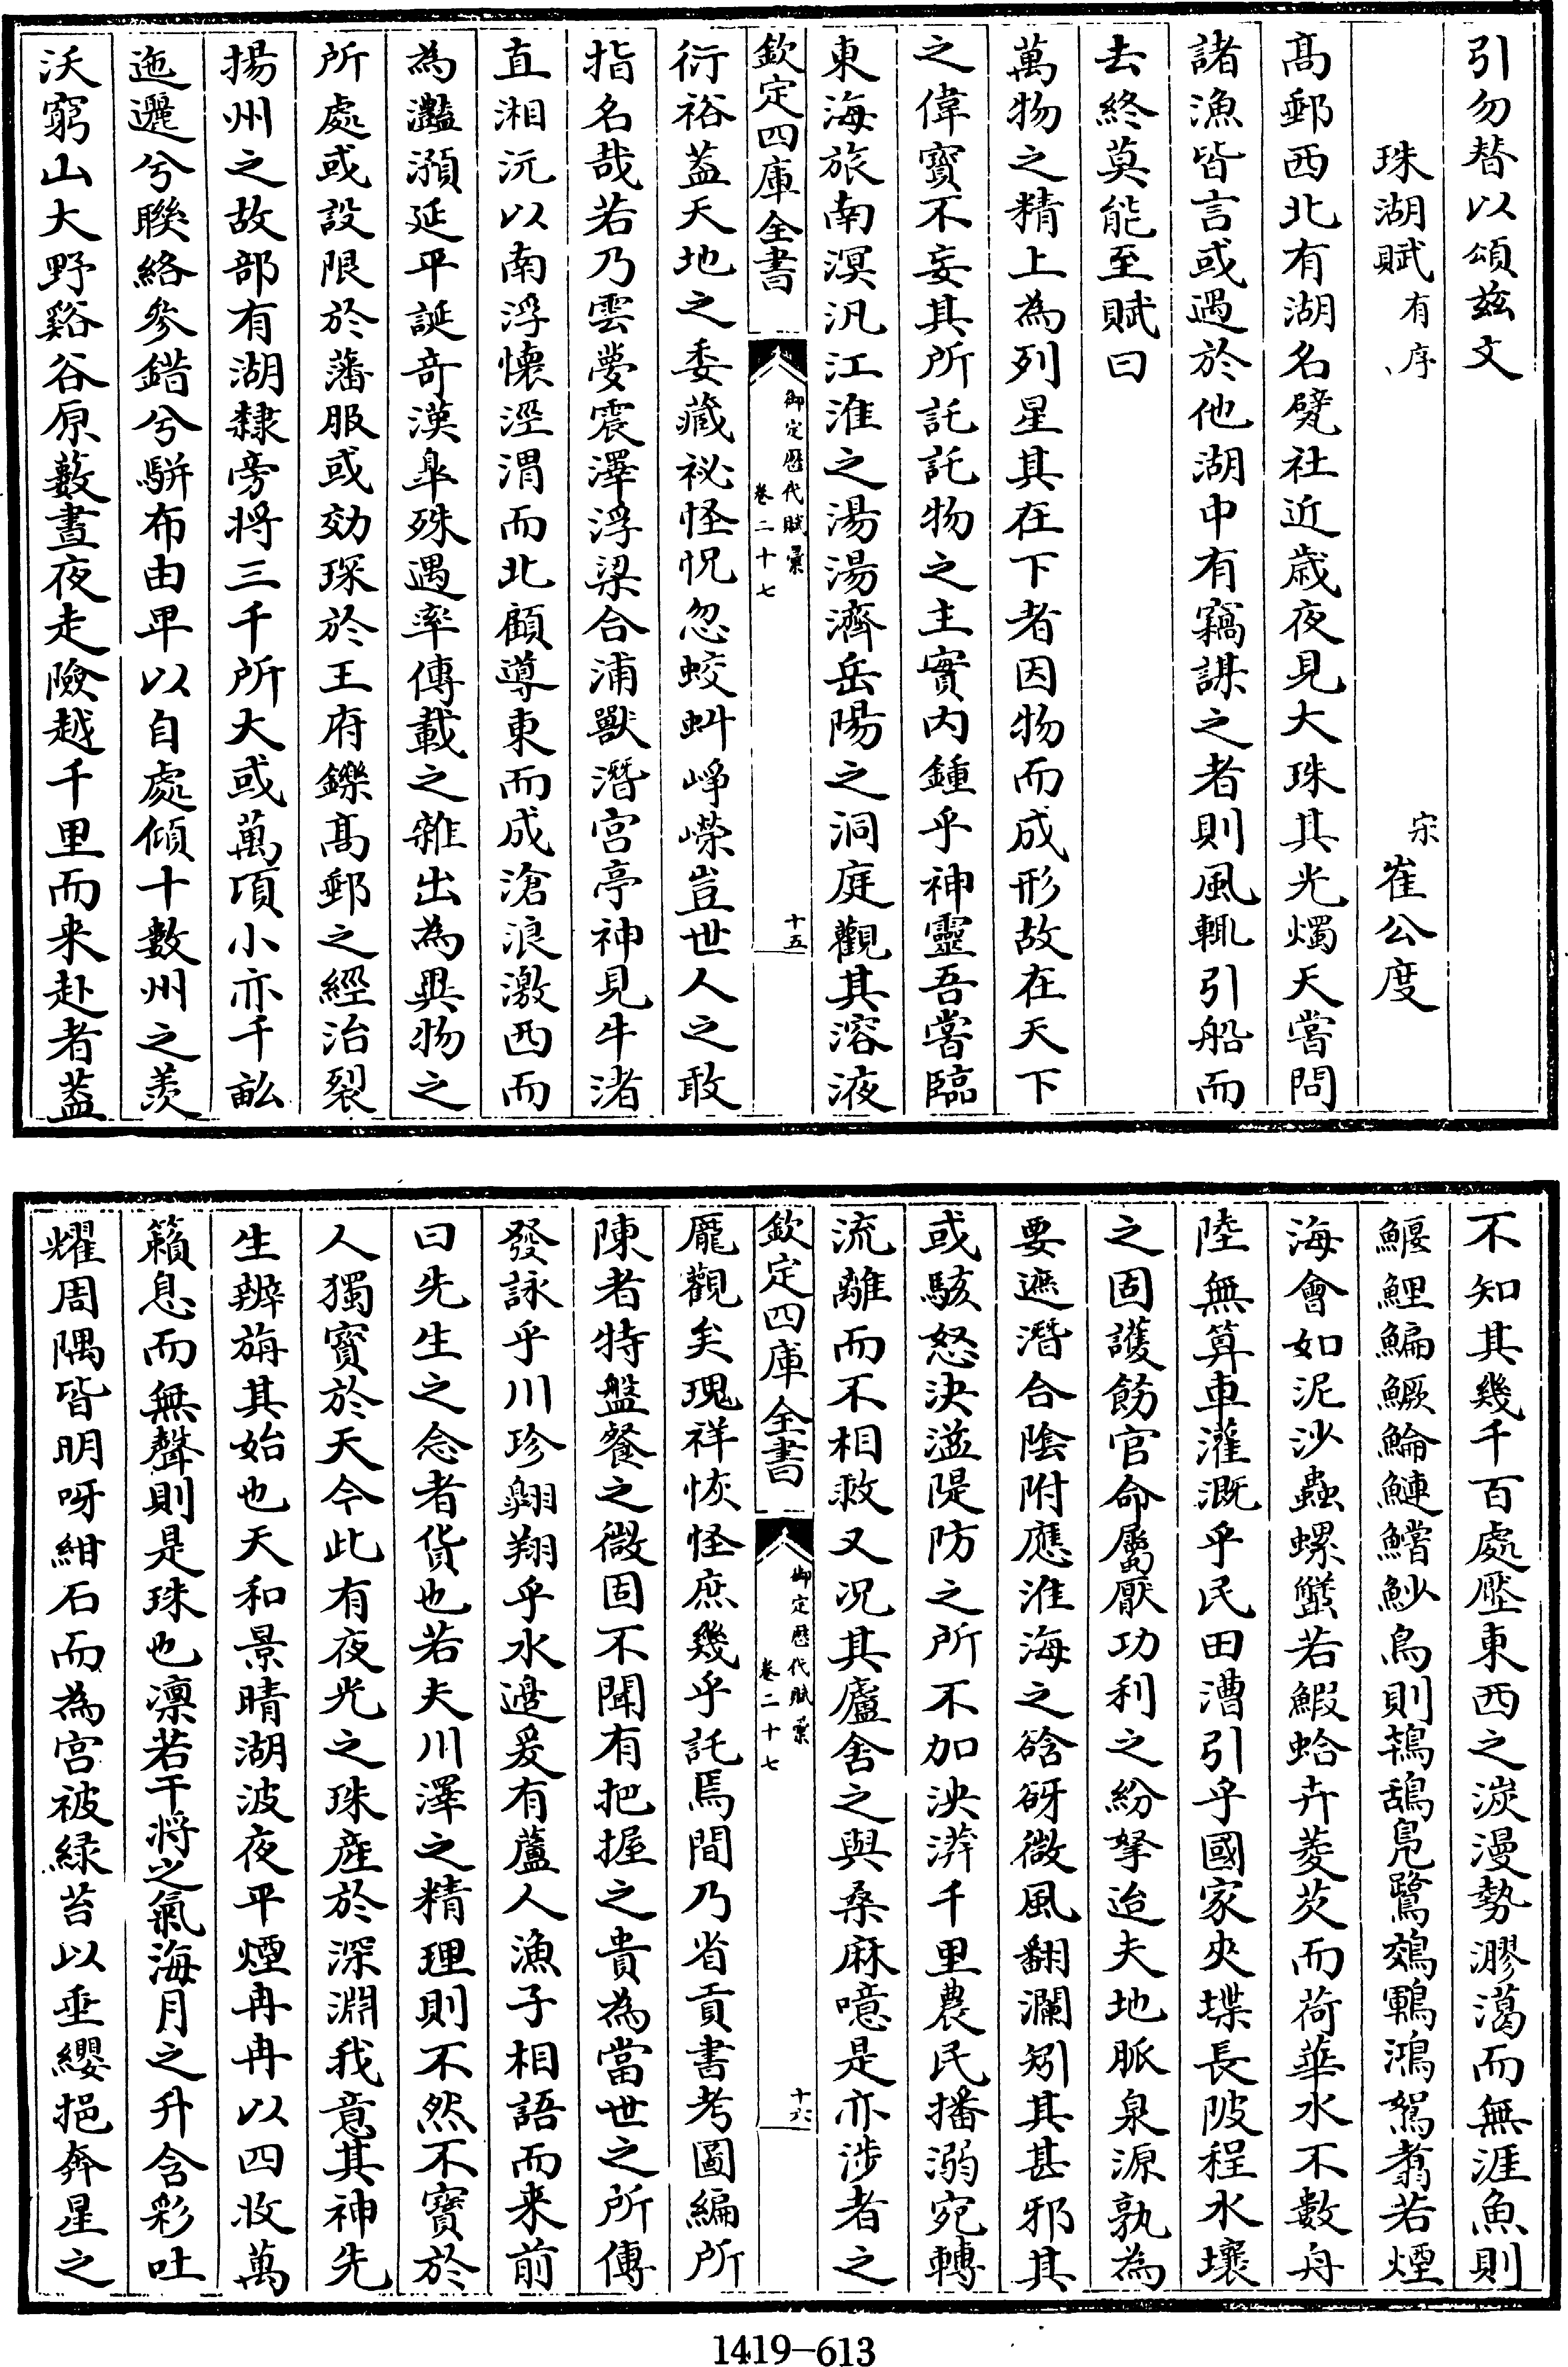 引勿替以頌兹文
珠湖賦有序
宋崔公度
髙郵西北有湖名甓社近歳夜見大珠其光燭天嘗問
諸漁皆言或遇於他湖中有竊謀之者則風輒引船而
去終莫能至賦曰
萬物之精上為列星其在下者因物而成形故在天下
之偉寳不妄其所託託物之主實内鍾乎神靈吾嘗臨
東海旅南溟汎江淮之湯湯濟岳陽之洞庭觀其溶液
欽定四庫全書
御定歴代賦彙
卷二十七
十五
衍裕葢天地之委藏祕怪怳忽蛟虯崢嶸豈世人之敢
指名哉若乃雲夢震澤浮梁合浦獸潛宫亭神見牛渚
直湘沅以南浮懷涇渭而北顧導東而成滄浪激西而
為灩澦延平誕竒漢臯殊遇率傳載之雜出為異物之
所處或設限於藩服或効琛於王府鑠髙郵之經治裂
揚州之故部有湖隸旁将三千所大或萬項小亦千畝
迤邐兮聯絡参錯兮駢布由卑以自處傾十數州之羨
沃窮山大野谿谷原藪晝夜走險越千里而来赴者葢
不知其幾千百處壓東西之淡漫勢漻㵧而無涯魚則
鰋鯉鯿鱖鯩鰱鱨魦鳥則鵁鴰鳬鷺鵁鷶鴻鴐翥若煙
海會如泥沙蟲螺蠯若鰕蛤卉菱芡而荷華水不數舟
陸無算車灌溉乎民田漕引乎國家夾堞長陂程水壤
之固護飭官命屬厭功利之紛拏迨夫地脈泉源孰為
要遮潛合陰附應淮海之谽砑微風翻瀾矧其甚邪其
或駭怒決溢隄防之所不加泱漭千里農民播溺宛轉
流離而不相救又况其廬舍之與桑麻噫是亦涉者之
欽定四庫全書
御定歴代賦彙
卷二十七
十六
厖觀矣瑰祥恢怪庶幾乎託焉間乃省貢書考圖編所
陳者特盤餐之微固不聞有把握之貴為當世之所傳
發詠乎川珍翺翔乎水邊爰有蘆人漁子相語而来前
曰先生之念者貨也若夫川澤之精理則不然不寳於
人獨寳於天今此有夜光之珠産於深淵我意其神先
生辨旃其始也天和景晴湖波夜平煙冉冉以四收萬
籟息而無聲則是珠也凛若干将之氣海月之升含彩吐
耀周隅皆明呀紺石而為宫被緑苔以垂纓挹奔星之
1419-613